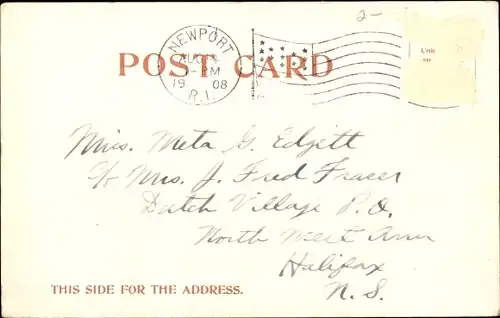 2-
NEWPORT
AUG
-PM
19 08
R.I.
POST CARD
Miss. Meta G. Edgett
c/o Mrs. J. Fred Fraser
Dutch Village P.O.
North West Arm
Halifax
N.S.
THIS SIDE FOR THE ADDRESS.